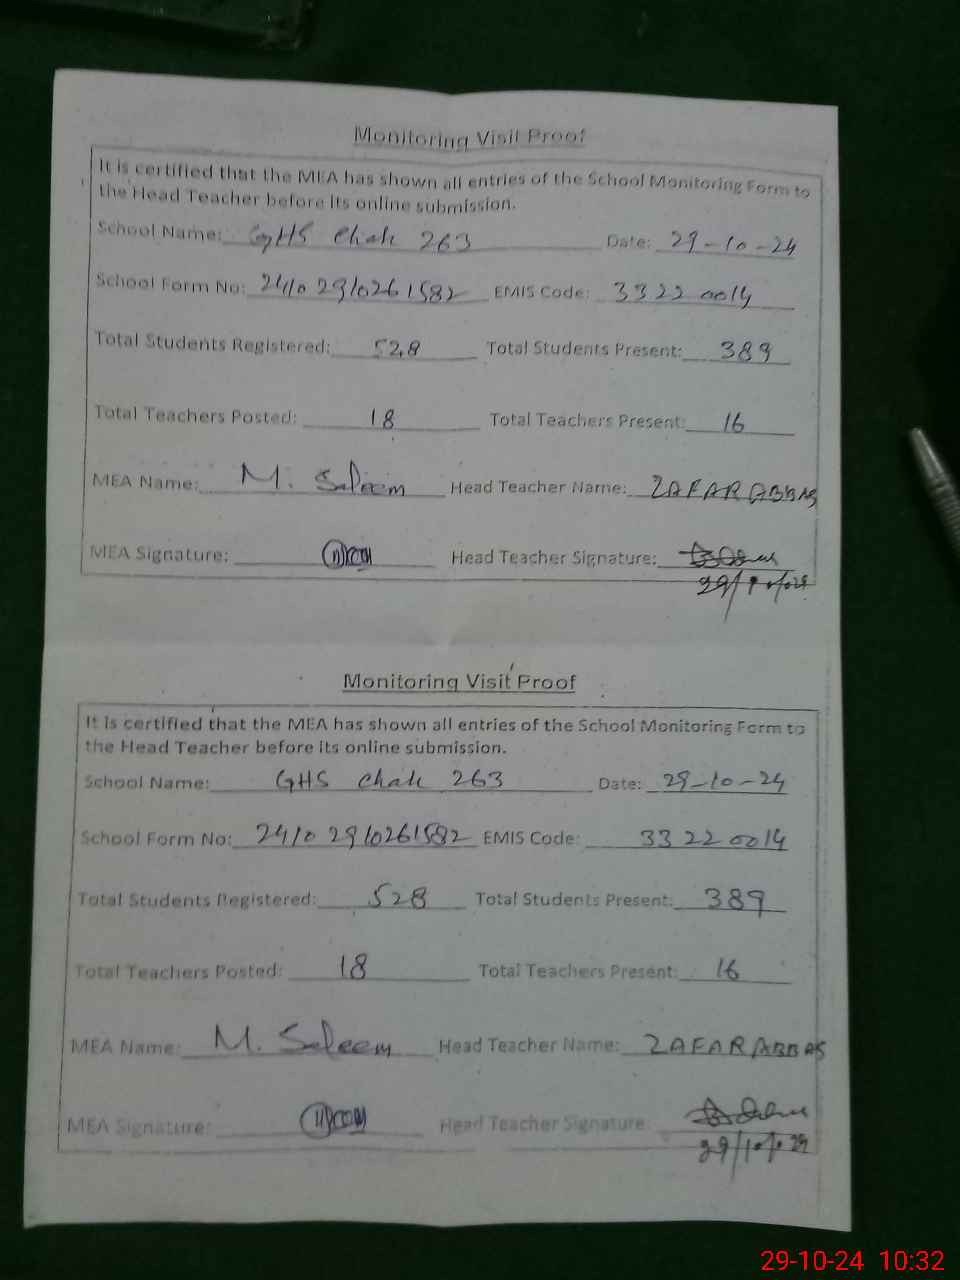 Monitoring Visit Proof
It is certified that the MEA has shown all entries of the School Monitoring Form to
the Head Teacher before its online submission.
School Name: GHS Chak 263 Date: 29-10-24
School Form No: 2410 2910261582 EMIS Code: 3322 0014
Total Students Registered: 528 Total Students Present: 389
Total Teachers Posted: 18 Total Teachers Present: 16
MEA Name: M. Saleem Head Teacher Name: ZAFAR ABBAS
MEA Signature: Head Teacher Signature:
29/10/024
Monitoring Visit Proof
It is certified that the MEA has shown all entries of the School Monitoring Form to
the Head Teacher before its online submission.
School Name: GHS Chak 263 Date: 29-10-24
School Form No: 2410 2910261582 EMIS Code: 33 22 0014
Total Students Registered: 528 Total Students Present: 389
Total Teachers Posted: 18 Total Teachers Present: 16
MEA Name: M. Saleem Head Teacher Name: ZAFAR ABBAS
MEA Signature: Head Teacher Signature:
29/10/024
29-10-24 10:32